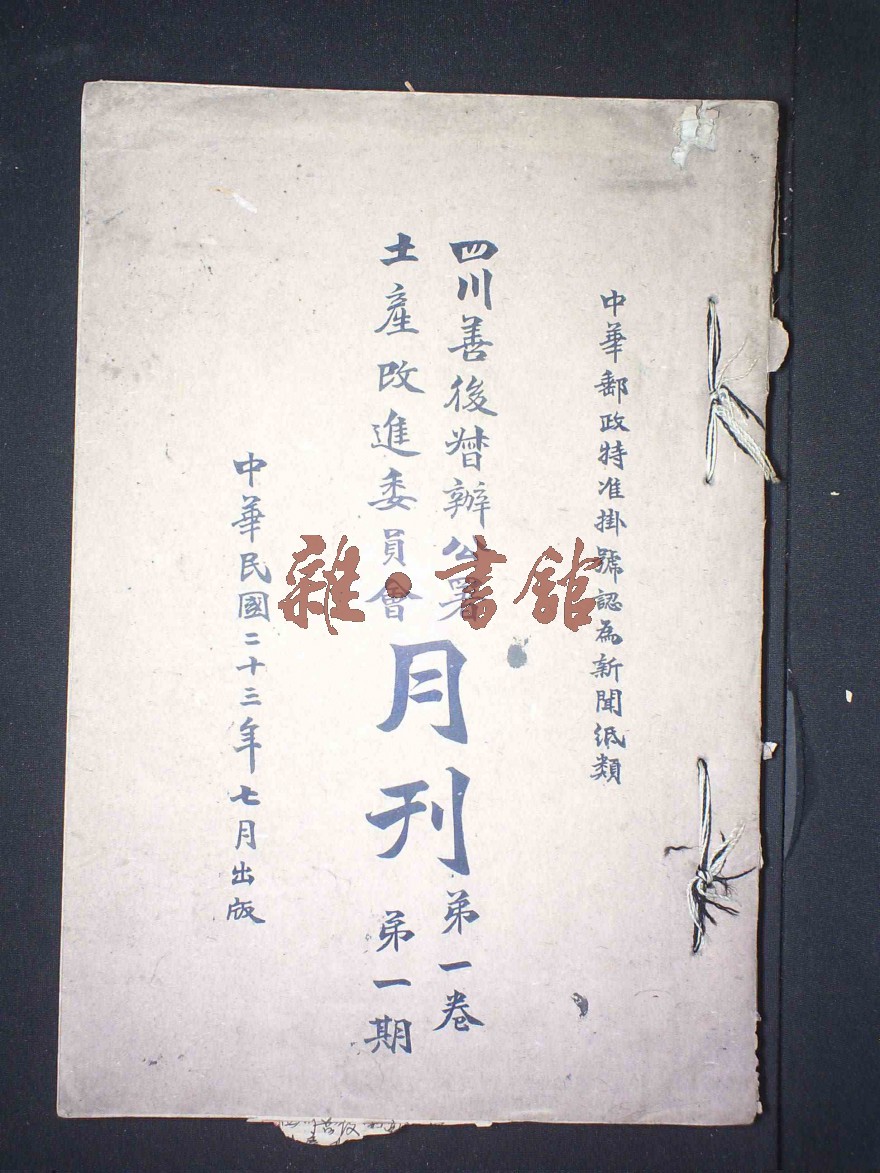 中華郵政特准掛號認為新聞紙類
四川善後督辦公署
土產改進委員會
月刊
第一卷
第一期
中華民國二十三年七月出版
雜·書館